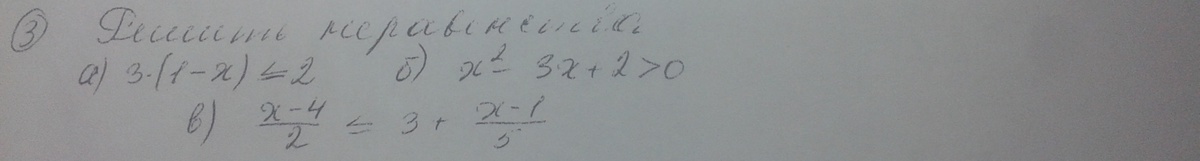 ③ Решить неравенства
а) 3·(1-x) ≤ 2 б) x² - 3x + 2 > 0
в) \frac{x-4}{2} ≤ 3 + \frac{x-1}{5}